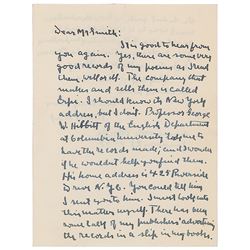 Dear Mr Smith:
It is good to hear from
you again. Yes, there are some very
good records of my poems as I read
them, well or ill. The company that
makes and sells them is called
Erpi. I should know its New York
address, but I don't. Professor George
W. Hibbitt of the English Department
at Columbia University helped to
have the records made; and I wonder
if he wouldn't help you find them.
His home address is 429 Riverside
Drive N.Y.C. You could tell him
I sent you to him. I must look into
this matter myself. There has been
some talk of my publishers' advertising
the records in a slip in my books.